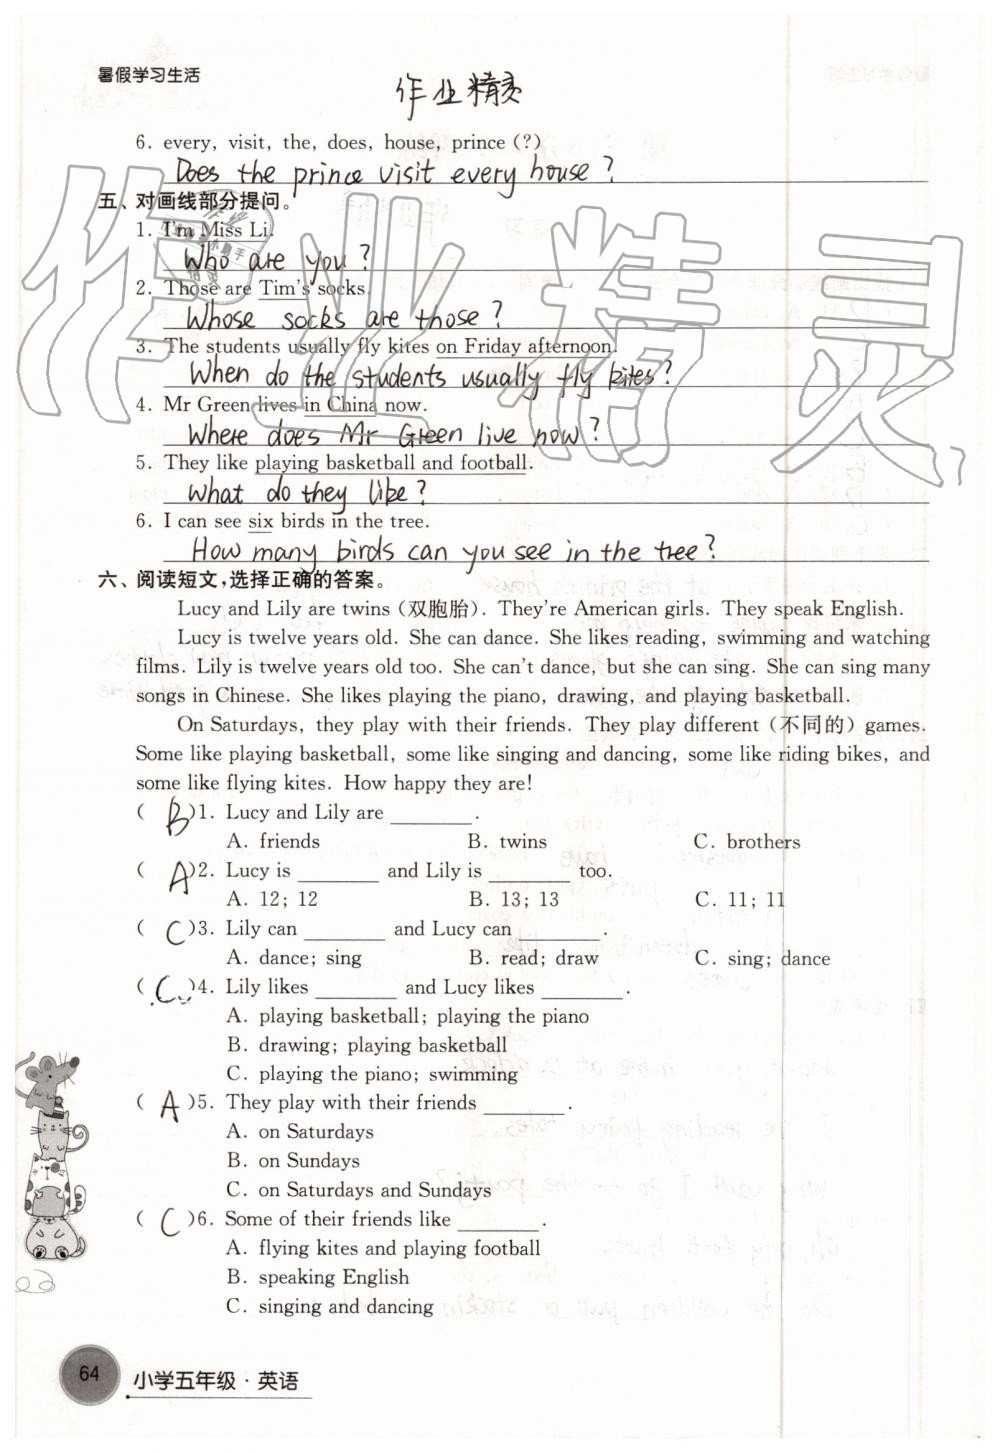 暑假学习生活
作业精灵
6. every, visit, the, does, house, prince (?)
Does the prince visit every house?
五、对画线部分提问。
1. I'm Miss Li.
Who are you?
2. Those are Tim's socks.
Whose socks are those?
3. The students usually fly kites on Friday afternoon.
When do the students usually fly kites?
4. Mr Green lives in China now.
Where does Mr Green live now?
5. They like playing basketball and football.
What do they like?
6. I can see six birds in the tree.
How many birds can you see in the tree?
六、阅读短文,选择正确的答案。
Lucy and Lily are twins (双胞胎). They're American girls. They speak English.
Lucy is twelve years old. She can dance. She likes reading, swimming and watching
films. Lily is twelve years old too. She can't dance, but she can sing. She can sing many
songs in Chinese. She likes playing the piano, drawing, and playing basketball.
On Saturdays, they play with their friends. They play different (不同的) games.
Some like playing basketball, some like singing and dancing, some like riding bikes, and
some like flying kites. How happy they are!
( B )1. Lucy and Lily are ________.
A. friends B. twins C. brothers
( A )2. Lucy is ________ and Lily is ________ too.
A. 12; 12 B. 13; 13 C. 11; 11
( C )3. Lily can ________ and Lucy can ________.
A. dance; sing B. read; draw C. sing; dance
( C )4. Lily likes ________ and Lucy likes ________.
A. playing basketball; playing the piano
B. drawing; playing basketball
C. playing the piano; swimming
( A )5. They play with their friends ________.
A. on Saturdays
B. on Sundays
C. on Saturdays and Sundays
( C )6. Some of their friends like ________.
A. flying kites and playing football
B. speaking English
C. singing and dancing
64
小学五年级·英语
作业精灵